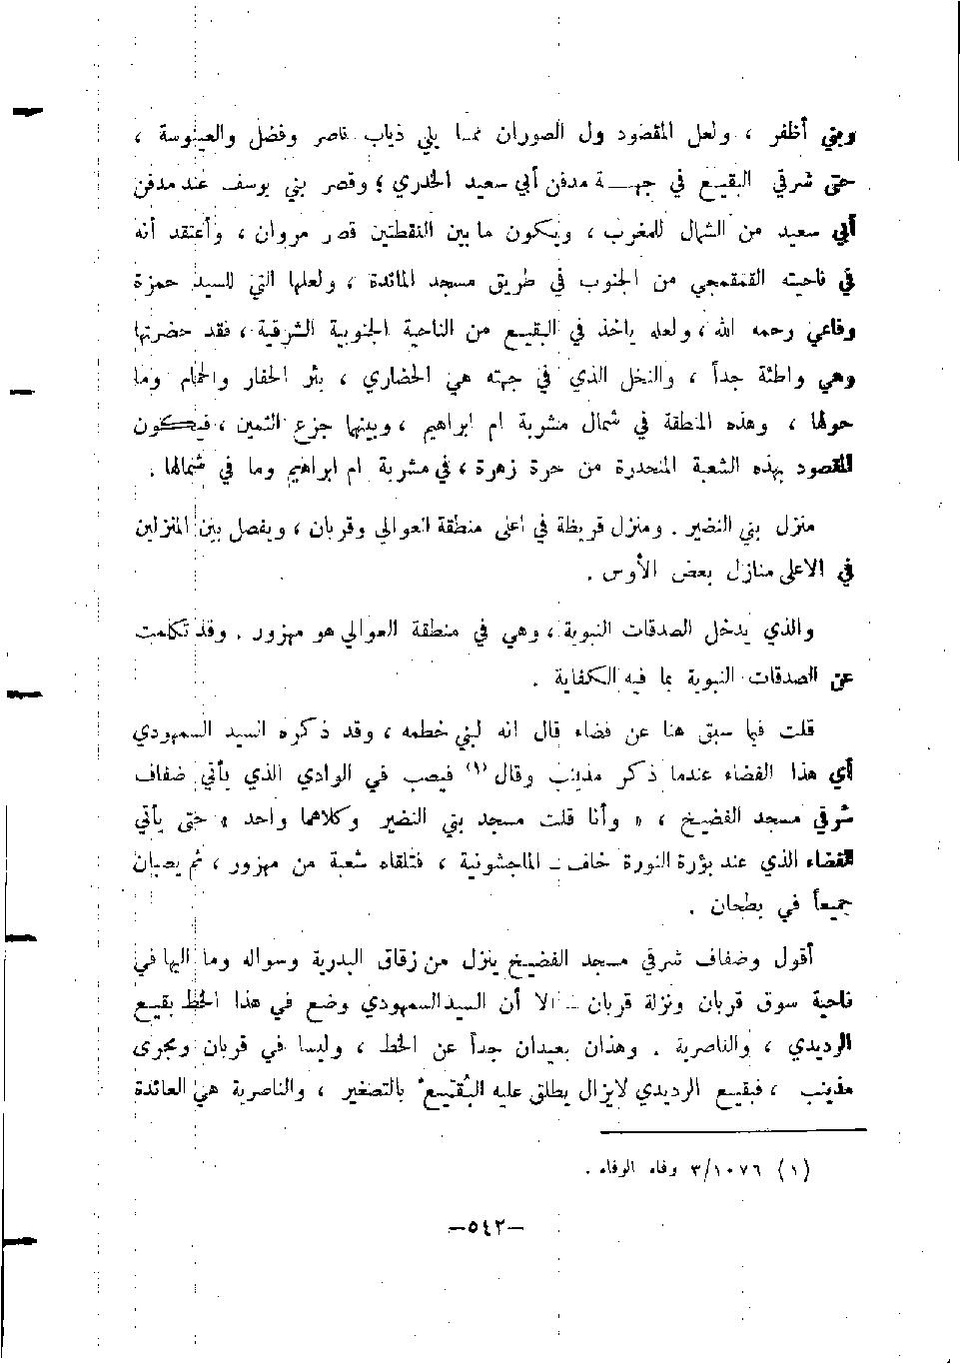 وبني أظفر ، ولعل المقصود ول الصوران مما يلي ذياب ناصر وفضل والعينوسة ،
حتى شرقي البقيع في جهة مدفن أبي سعيد الخدري ؛ وقصر بني يوسف عند مدفن
أبي سعيد من الشمال للمغرب ، ويكون ما بين النقطتين قصر مروان ، وأعتقد أنه
في ناحيته القمقمجي من الجنوب في طريق مسجد المائدة ، ولعلها التي للسيد حمزة
رفاعي رحمه الله ، ولعله ياخذ في البقيع من الناحية الجنوبية الشرقية ، فقد حضرتها
وهي واطئة جداً ، والنخل الذي في جهته هي الحضاري ، بئر الحفار والحمام وما
حولها ، وهذه المنطقة في شمال مشربة ام ابراهيم ، وبينهما جزع الثمين ، فيكون
المقصود بهذه الشعبة المنحدرة من حرة زهرة ، في مشربة ام ابراهيم وما في شمالها .
منزل بني النضير . ومنزل قريظة في اعلى منطقة العوالي وقربان ، ويفصل بين المنزلين
في الاعلى منازل بعض الأوس .
والذي يدخل الصدقات النبوية ، وهي في منطقة العوالي هو مهزور . وقد تكلمت
عن الصدقات النبوية بما فيه الكفاية .
قلت فيما سبق هنا عن فضاء قال انه لبني خطمه ، وقد ذكره السيد السمهودي
أي هذا الفضاء عندما ذكر مذينب وقال (١) فيصب في الوادي الذي يأتي ضفاف
شرقي مسجد الفضيخ ، « وأنا قلت مسجد بني النضير وكلاهما واحد » حتى يأتي
الفضاء الذي عند بؤرة النورة خلف الماجشونية ، فتلقاه شعبة من مهزور ، ثم يصبان
جميعاً في بطحان .
أقول وضفاف شرقي مسجد الفضيخ ينزل من زقاق البدرية وسواله وما اليها في
ناحية سوق قربان ونزلة قربان - الا أن السيد السمهودي وضع في هذا الخط بقيع
الرديدي ، والناصرية . وهذان بعيدان جداً عن الخط ، وليسا في قربان ومجرى
مذينب ، فبقيع الرديدي لايزال يطلق عليه البُقيّع بالتصغير ، والناصرية هي العائدة
(١) ٣/١٠٧٦ وفاء الوفاء .
—٥٤٢—